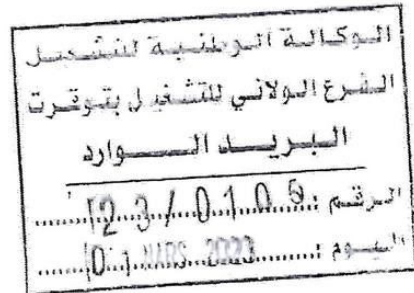 الوكالة الوطنية للتشغيل
الفرع الولائي للتشغيل بتوقرت
البريد الوارد
الرقم : 23/0105
اليوم : 01 MARS 2023